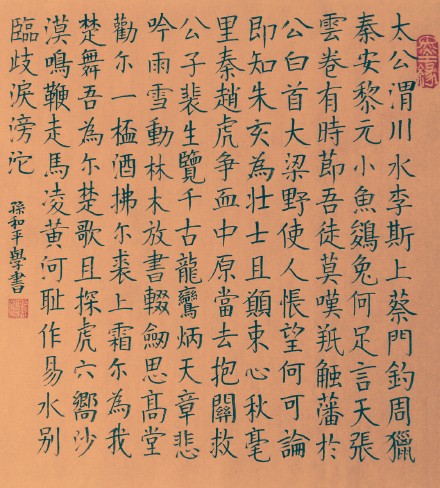 太公渭川水李斯上蔡門釣周獵
秦安黎元小魚鷄兔何足言天張
雲卷有時節吾徒莫嘆羝觸藩於
公白首大梁野使人悵望何可論
即知朱亥為壯士且願束心秋毫
里秦趙虎爭血中原當去抱關救
公子裴生覽千古龍鸞炳天章悲
吟雨雪動林木放書輟劒思高堂
勸尔一極酒拂尔裘上霜尔為我
楚舞吾為尔楚歌且探虎穴嚮沙
漠鳴鞭走馬凌黃河耻作易水别
臨歧淚滂沱
孫和平學書